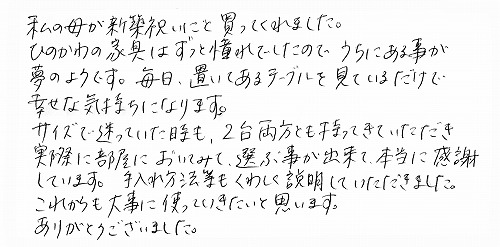 私の母が新築祝いにと買ってくれました。
ひのかわの家具はずっと憧れでしたので、うちにある事が
夢のようです。毎日、置いてあるテーブルを見ているだけで
幸せな気持ちになります。
サイズで迷っていた時も、2台両方とも持ってきていただき
実際に部屋においてみて、選ぶ事が出来て、本当に感謝
しています。手入れ方法等もくわしく説明していただきました。
これからも大事に使っていきたいと思います。
ありがとうございました。